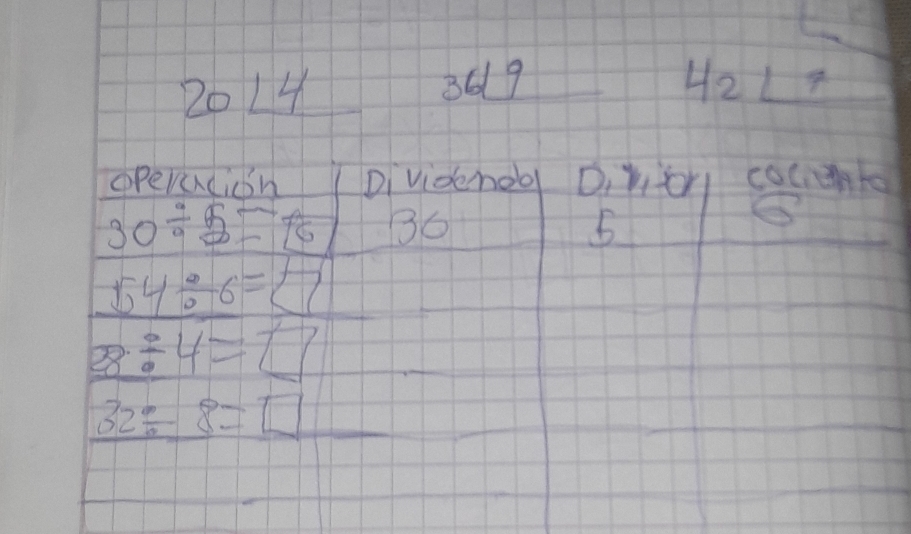 20 4 36 9 42
operación Dividendo Divisor cociente
30 ÷ 5 = 6 30 5 6
54 ÷ 6 =
28 ÷ 4 =
32 ÷ 8 =